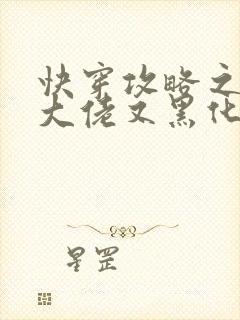 快穿攻略之
大佬又黑化
星罡